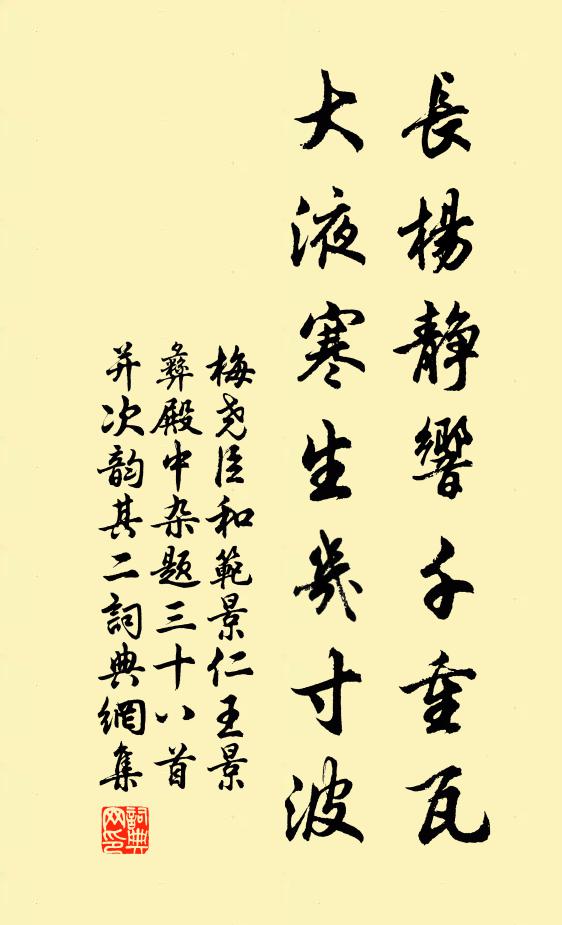 長楊静響千重瓦
大液寒生幾寸波
梅尧臣和範景仁王景
彝殿中杂题三十八首
并次韵其二詞典網集
詞典
网印